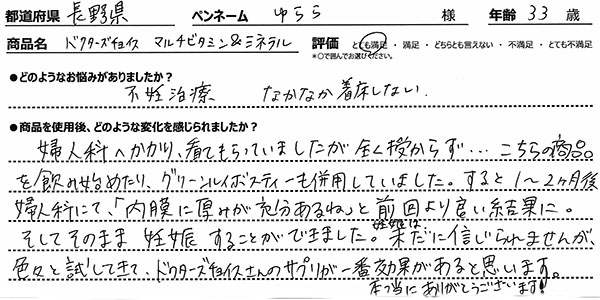 都道府県 長野県 ペンネーム ゆらら 様 年齢 33 歳
商品名 ドクターズチョイス マルチビタミン&ミネラル 評価 とても満足・満足・どちらとも言えない・不満足・とても不満足
*○で囲んでお選びください。
●どのようなお悩みがありましたか?
不妊治療 なかなか着床しない。
●商品を使用後、どのような変化を感じられましたか?
婦人科へかかり、看てもらっていましたが全く授からず… こちらの商品。
を飲み始めたり、グリーンルイボスティーも併用していました。すると1〜2ヶ月後
婦人科にて、「内膜に厚みが充分あるね」と前回より良い結果に。
そしてそのまま妊娠することができました。未だに信じられませんが、
色々と試してきて、ドクターズチョイスさんのサプリが一番効果があると思います。
本当にありがとうございます!